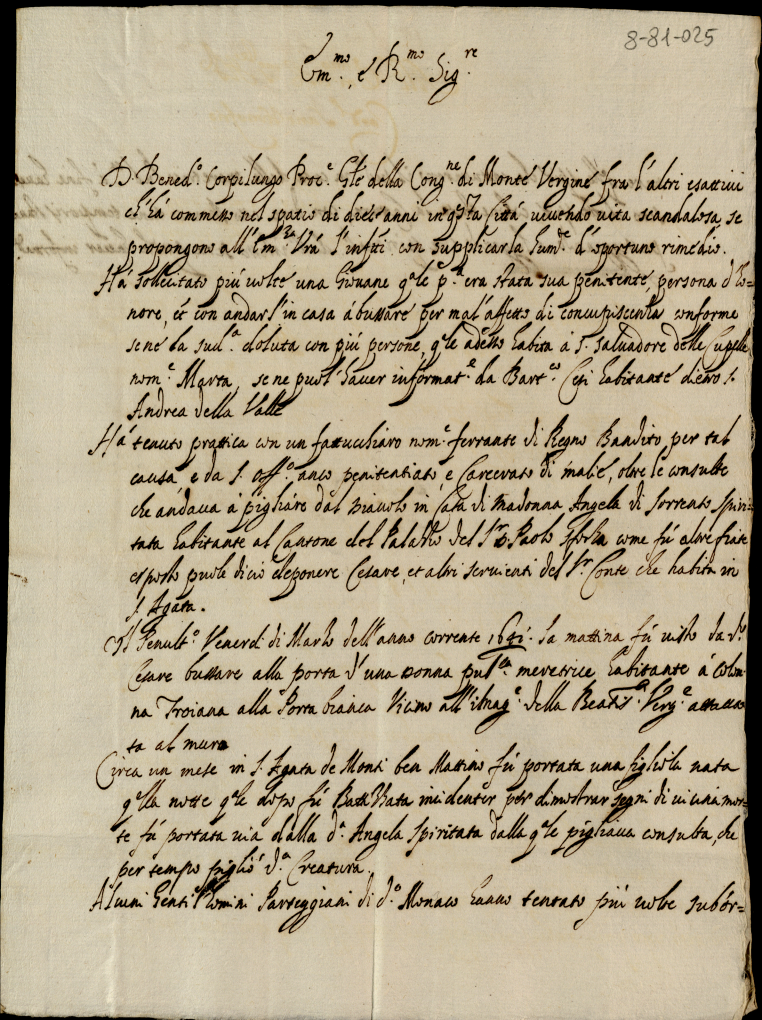 8-81-025
Em.mo, é R.mo Sig.re
D. Bened.o Corpilungo Proc.e Gl'e della Cong.ne di Monte Vergine fra l'altri esattiui
ch'há commesso nel spatio di dieci anni in q.sta Cittá uiuendo uita scandalosa, se
propongono all'Em.za Vrá l'infiti con supplicarla hum.e d'oportuno rimedio.
Há sollecitato piú uolte una Giouane q.le p.a era stata sua penitente, persona d'ho=
nore, et con andarl'in casa á bussare per mal'affetto di concupiscenza conforme
se né la sud.a doluta con piú persone, q.le adesso habita á S. Saluadore delle Cupelle
nom.e Marta, se ne puol'hauer informat.e da Bart.eo Cesi habitante dietro S.
Andrea della Valle
Há tenuto prattica con un fattucchiaro nom.e ferrante di Regno Bandito per tal
causa, e da S. Off.o anco penitentiato, e Carcerato di malie, oltre le consulte
che andaua á pigliare dal Diauolo in Casa di Madonna Angela di Sorrento spiri=
tata habitante al Cantone del Palazzo del S.r D. Paolo Sforza come fú altre fiate
esposto puole di ció deponere Cesare, et altri seruienti del S.r Conte che habita in
S. Agata.
Il Penult.o Venerdi di Marzo dell'anno corrente 1641. la mattina fú uisto da d.o
Cesare bussare alla porta d'una donna pu.ca meretrice habitante á Colon=
na Troiana alla Porta bianca Vicino all'imag.e della Beatiss.a Verg.e attacca=
ta al muro
Circa un mese in S. Agata de Monti ben Mattino fú portata una figliola nata
q.lla notte q.le dopo fú Battezzata incidenter per dimostrar segni di uicina mor=
te fú portata uia dalla d.a Angela spiritata dalla q.le pigliaua consulta, che
per tempo piglió d.a Creatura.
Alcuni Gentil'homini Parteggiani di d.o Monaco hanno tentato piú uolte subór=